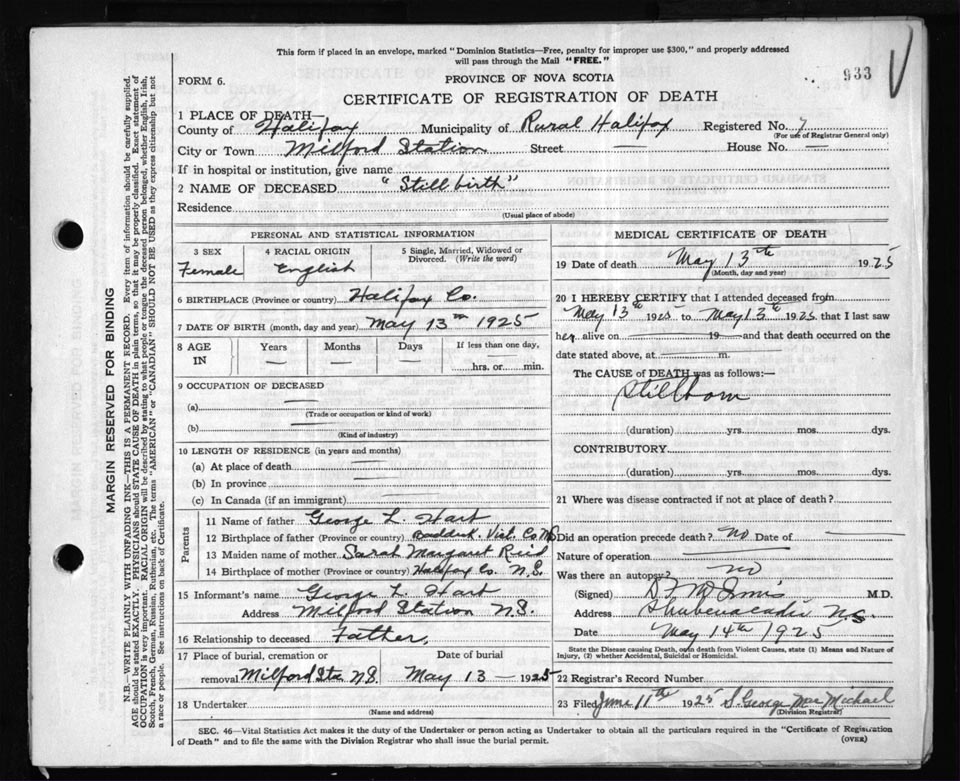 This form if placed in an envelope, marked "Dominion Statistics—Free, penalty for improper use $300," and properly addressed
will pass through the Mail "FREE."
FORM 6.
PROVINCE OF NOVA SCOTIA
933
CERTIFICATE OF REGISTRATION OF DEATH
1 PLACE OF DEATH—
County of Halifax Municipality of Rural Halifax Registered No. 7
(For use of Registrar General only)
City or Town Milford Station Street — House No. —
If in hospital or institution, give name
2 NAME OF DECEASED "Still birth"
Residence
(Usual place of abode)
PERSONAL AND STATISTICAL INFORMATION
3 SEX 4 RACIAL ORIGIN 5 Single, Married, Widowed or
Divorced. (Write the word)
Female English
6 BIRTHPLACE (Province or country) Halifax Co.
7 DATE OF BIRTH (month, day and year) May 13th 1925
8 AGE IN Years Months Days If less than one day,
— — — hrs. or min.
9 OCCUPATION OF DECEASED
(a)
(Trade or occupation or kind of work)
(b)
(Kind of industry)
10 LENGTH OF RESIDENCE (in years and months)
(a) At place of death
(b) In province
(c) In Canada (if an immigrant)
Parents
11 Name of father George L. Hart
12 Birthplace of father (Province or country) Baddeck. Vict. Co. N.S.
13 Maiden name of mother Sarah Margaret Reid
14 Birthplace of mother (Province or country) Halifax Co. N.S.
15 Informant's name George L. Hart
Address Milford Station N.S.
16 Relationship to deceased Father.
17 Place of burial, cremation or Date of burial
removal Milford Sta. N.S. May 13 — 1925
18 Undertaker
(Name and address)
MEDICAL CERTIFICATE OF DEATH
19 Date of death May 13th 1925
(Month, day and year)
20 I HEREBY CERTIFY that I attended deceased from
May 13th 1925 to May 13th 1925 that I last saw
her alive on 19 and that death occurred on the
date stated above, at m.
The CAUSE of DEATH was as follows:—
Stillborn
(duration) yrs. mos. dys.
CONTRIBUTORY
(duration) yrs. mos. dys.
21 Where was disease contracted if not at place of death?
Did an operation precede death? no Date of —
Nature of operation
Was there an autopsy? no
(Signed) M.D.
Address Shubenacadie N.S.
Date May 14th 1925
State the Disease causing Death, or in death from Violent Causes, state (1) Means and Nature of
Injury, (2) whether Accidental, Suicidal or Homicidal.
22 Registrar's Record Number
23 Filed June 11th 1925 S. George MacMichael
(Division Registrar)
SEC. 46—Vital Statistics Act makes it the duty of the Undertaker or person acting as Undertaker to obtain all the particulars required in the "Certificate of Registration
of Death" and to file the same with the Division Registrar who shall issue the burial permit.
(OVER)
MARGIN RESERVED FOR BINDING
N.B.—WRITE PLAINLY WITH UNFADING INK—THIS IS A PERMANENT RECORD. Every item of information should be carefully supplied.
AGE should be stated EXACTLY. PHYSICIANS should STATE CAUSE OF DEATH in plain terms, so that it may be properly classified. Exact statement of
OCCUPATION is very important. RACIAL ORIGIN will be described by stating to what people or tongue the deceased person belonged, whether English, Irish,
Scotch, French, German, Russian, Ruthenian, etc. The terms "AMERICAN" or "CANADIAN" SHOULD NOT BE USED as they express citizenship but not
a race or people. See instructions on back of Certificate.